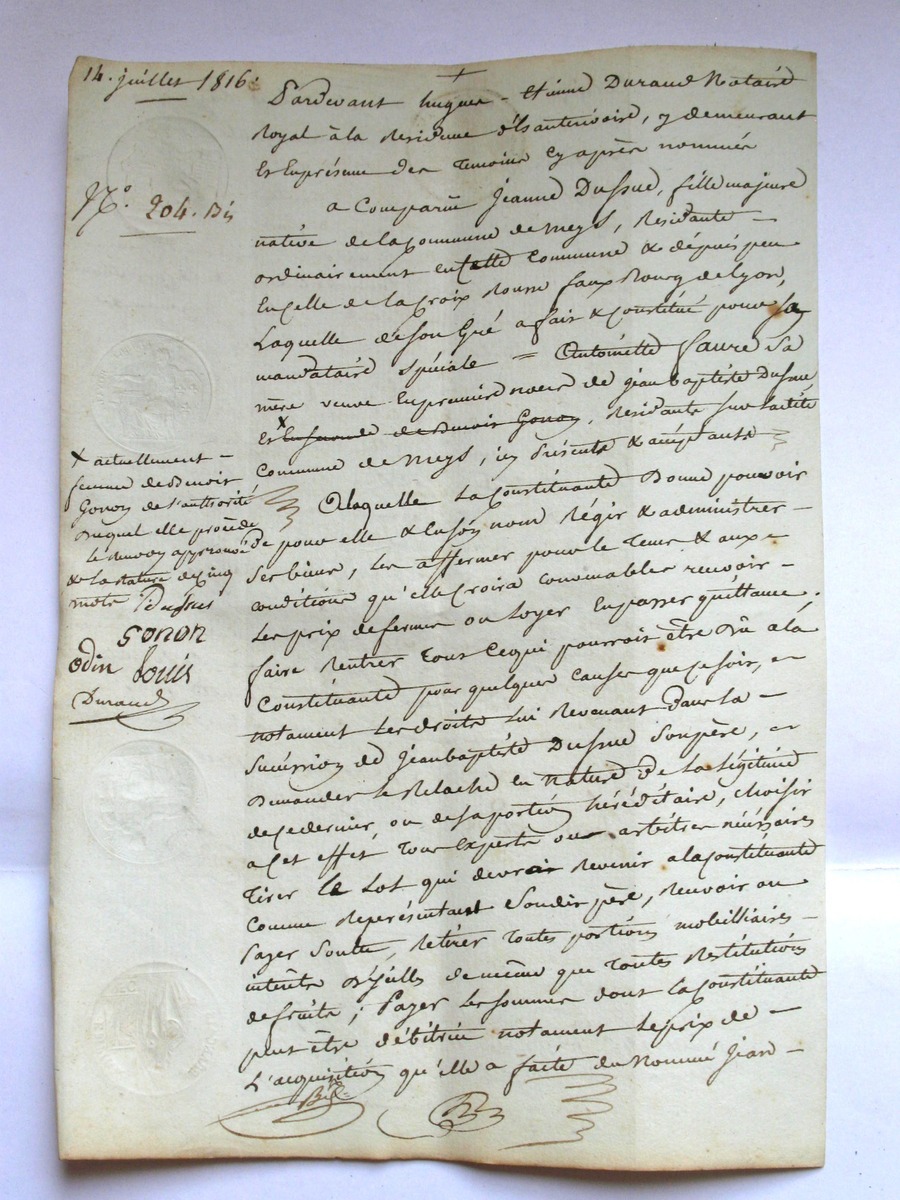 14. juillet 1816.
Pardevant hugues - Etienne Durand Notaire
Royal à la Residence d'isanterivoire, y demeurant
Et Enprésence des Temoins Cy après nommés
N.° 204. Bis
a Comparüe Jeanne Dussud, fille majeure
native de la Commune de meys, Residante -
ordinairement en Cette Commune & dépuis peu
En Celle de la Croix Rousse faux Bourg de Lyon,
Laquelle de son Gré a fait & Constitué pour Sa
mandataire spéciale = Antoinette faure Sa
mère veuve Enpremier noces de jean baptiste Dussud
Et x En seconde de Benoit Gonon, Residante sur laditte
Commune de meys, icy présente & acceptante
x actuellement -
femme de Benoit
Gonon de l'authorité
Duquel elle procède
le renvoy approuvé
& la rature de cinq
mots Dussus
Gonon
odin Louis
Durand
A laquelle La Constituante Donne pouvoir
de pour elle & en son nom Régir & administrer -
Ses biens, Les affermer pour le Tems & aux =
conditions qu'elle Croira convenables recevoir -
Les prix de fermes ou Loyer En passer quittance.
faire Rentrer tous Cequi pourroit être Dû a la
Constituante par quelques Causes que ce soit, et
notament Les droits Lui Revenant Dans la -
Sucession de Jean baptiste Dussud Son père, et
Demander le Relache en nature de la Légitime
de ce dernier, ou de sa portion héréditaire, choisir
a Cet effet Tous Experts ou arbitres nécéssaires
Tirer le Lot qui devroit Revenir a la Constituante
Comme Représentant Soudit père, Recevoir ou
Payer Soulte, Retirer Toutes portions mobilliaires -
intérêts D'ycelles de même que Toutes Restitutions
de fruits ; Payer Les sommes dont la Constituante
peut être débitrice notament Le prix de -
L'acquisition qu'elle a faite du Nommé Jean -